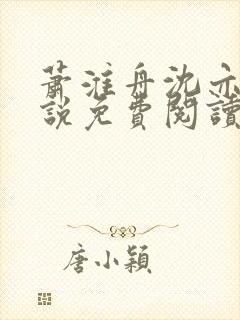 蕭淮舟沈亦
說免費閱讀
唐小穎